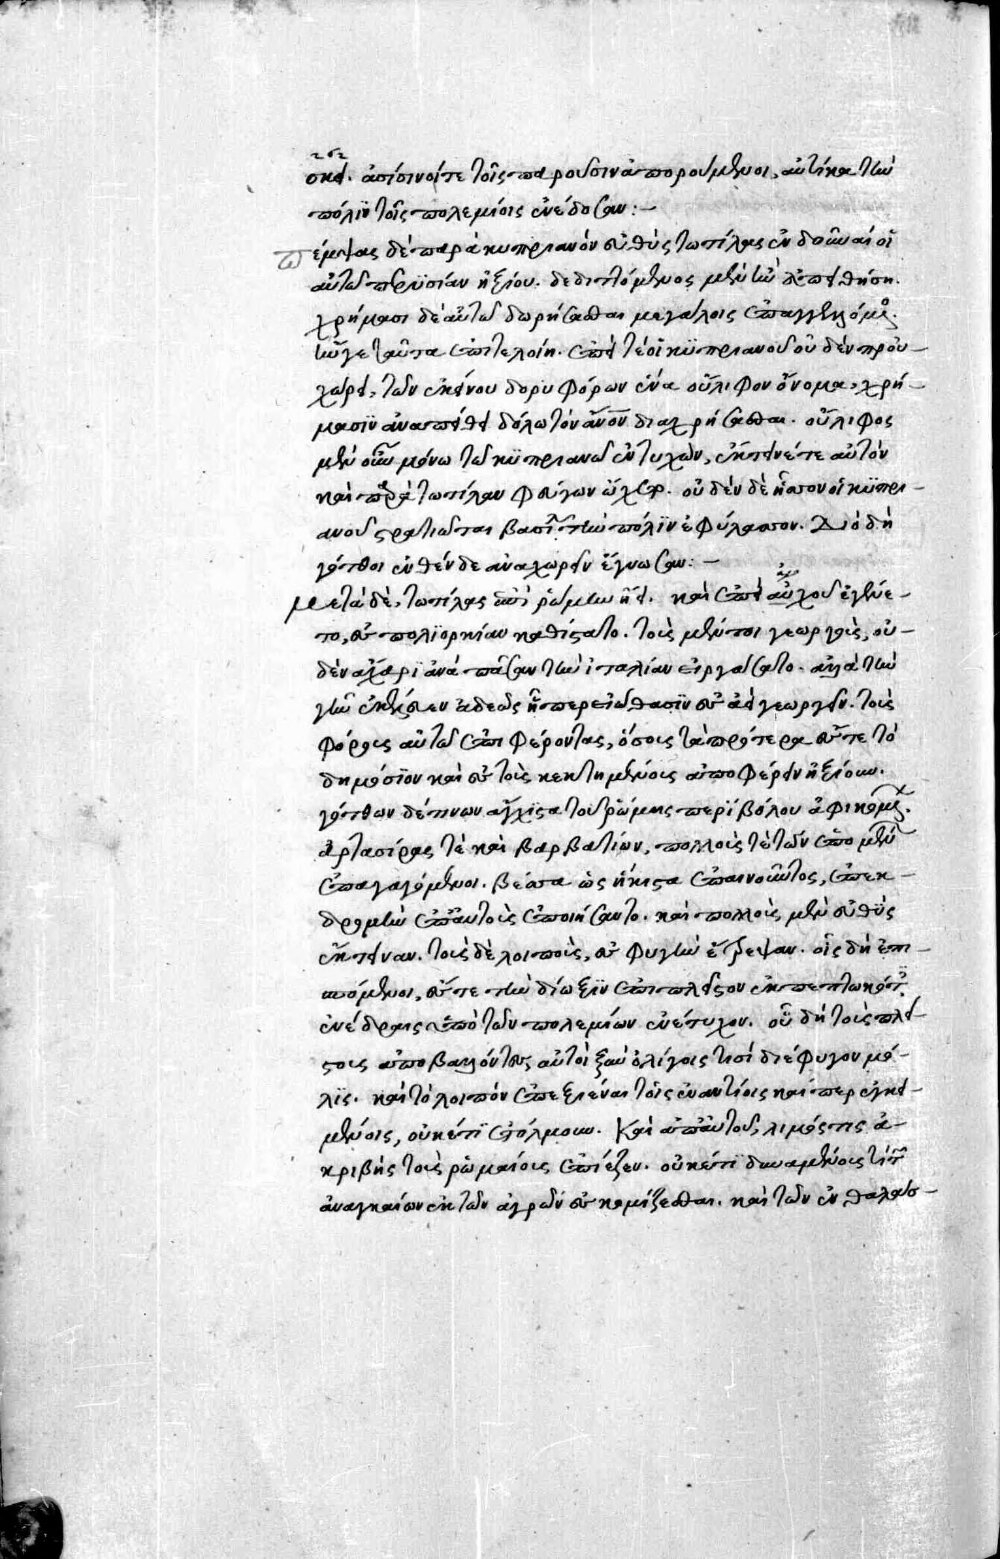 σκει. ἀσίσινοί τε τοῖς παροῦσιν ἀπορούμενοι, αὐτίκα τὴν
πόλϊν τοῖς πολεμίοις ἐνέδοσαν:—
Πέμψας δὲ παρὰ κυπριανὸν εὐθὺς τωτίλας ἐνδοῦναί οἱ
αὐτῶ περϋσίαν ἠξίου. δεδιττόμενος μὲν ἢν ἀπειθήση.
χρήμασι δὲ αὐτῶ δωρήσασθαι μεγάλοις ἐπαγγελόμενος.
ἤν γε ταῦτα ἐπιτελοίη. ἐπεί τέ οἱ κϋπριανοῦ οὐδὲν προὐ-
χώρει, τῶν ἐκείνου δορυφόρων ἕνα οὔλιφον ὄνομα, χρή-
μασϊν ἀναπείθει δόλω τὸν ἄνον διαχρήσασθαι. οὔλιφος
μὲν οὖν μόνω τῶ κϋπριανῶ ἐντυχὼν, ἔκτεινέ τε αὐτὸν
καὶ παρὰ τωτίλαν φεύγων ὤχετο. οὐδὲν δὲ ἧττον οἱ κϋπρι-
ανοῦ στρατιῶται βασιλεῖ τὴν πόλϊν ἐφύλασσον. Διὸ δὴ
γότθοι ἐνθένδε ἀναχωρεῖν ἔγνωσαν:—
Μετὰ δὲ, τωτίλας ἐπὶ ῥώμην ἤει. καὶ ἐπεὶ ἄγχου ἐγένε-
το, ἐς πολϊορκίαν καθίστατο. τοὺς μέντοι γεωργοὺς, οὐ-
δὲν ἄχαρι ἀνὰ πᾶσαν τὴν ἰταλίαν εἰργάσατο. ἀλλὰ τὴν
γῆν ἐκέλευεν ἀδεῶς ᾗπερ εἰώθασϊν ἐς ἀεὶ γεωργεῖν. τοὺς
φόρους αὐτῶ ἐπιφέροντας, ὅσοις τὰ πρότερα ἔς τε τὸ
δημόσϊον καὶ ἐς τοὺς κεκτημένους ἀποφέρειν ἠξίουν.
γότθων δέ τινων ἄγχϊστα τοῦ ῥώμης περϊβόλου ἀφικομένων.
ἀρτασίρας τὲ καὶ βαρβατίων, πολλοὺς τὲ τῶν ἑπομένων
ἐπαγαγόμενοι. βέσσα ὡς ἥκιστα ἐπαινοῦντος, ἐπεκ-
δρομὴν ἐπ' αὐτοὺς ἐποιήσαντο. καὶ πολλοὺς μὲν εὐθὺς
ἔκτειναν. τοὺς δὲ λοιποὺς, ἐς φυγὴν ἔτρεψαν. οἷς δὴ ἐπι-
σπόμενοι, ἔς τε τὴν δίωξϊν ἐπιπλεῖστον ἐκπεπτωκότες.
ἐνέδραις ὑπὸ τῶν πολεμίων ἐνέτυχον. οὗ δὴ τοὺς πλεί-
στους ἀποβαλόντες αὐτοὶ ξὺν ὀλίγοις τισί διέφυγον μό-
λϊς. καὶ τὸ λοιπὸν ἐπεξιέναι τοῖς ἐναντίοις καίπερ ἐγκει-
μένοις, οὐκέτϊ ἐτόλμων. Καὶ ἀπ' αὐτοῦ, λιμός τις ἀ-
κριβὴς τοὺς ῥωμαίους ἐπίεζεν. οὐκέτϊ δυναμένους τὶ τῶν
ἀναγκαίων ἐκ τῶν ἀγρῶν ἐσκομίζεσθαι. καὶ τῶν ἐν θαλάσ-